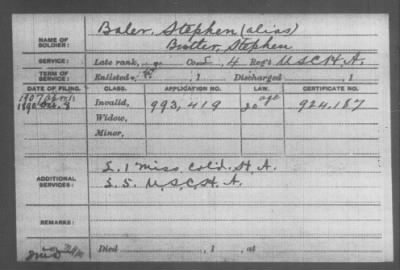 NAME OF SOLDIER: Baler, Stephen (alias)
Butler, Stephen
SERVICE: Late rank, Co. L, 4 Reg't U.S.C.H.A.
TERM OF SERVICE: Enlisted, 1 Discharged , 1
DATE OF FILING. CLASS. APPLICATION NO. LAW. CERTIFICATE NO.
1907
1890 Invalid, 993,419 age 924,187
Widow,
Minor,
ADDITIONAL SERVICES: L. 1 Miss. Cold. H. A.
L. 5. U.S.C.H.A.
REMARKS:
Died , 1 , at